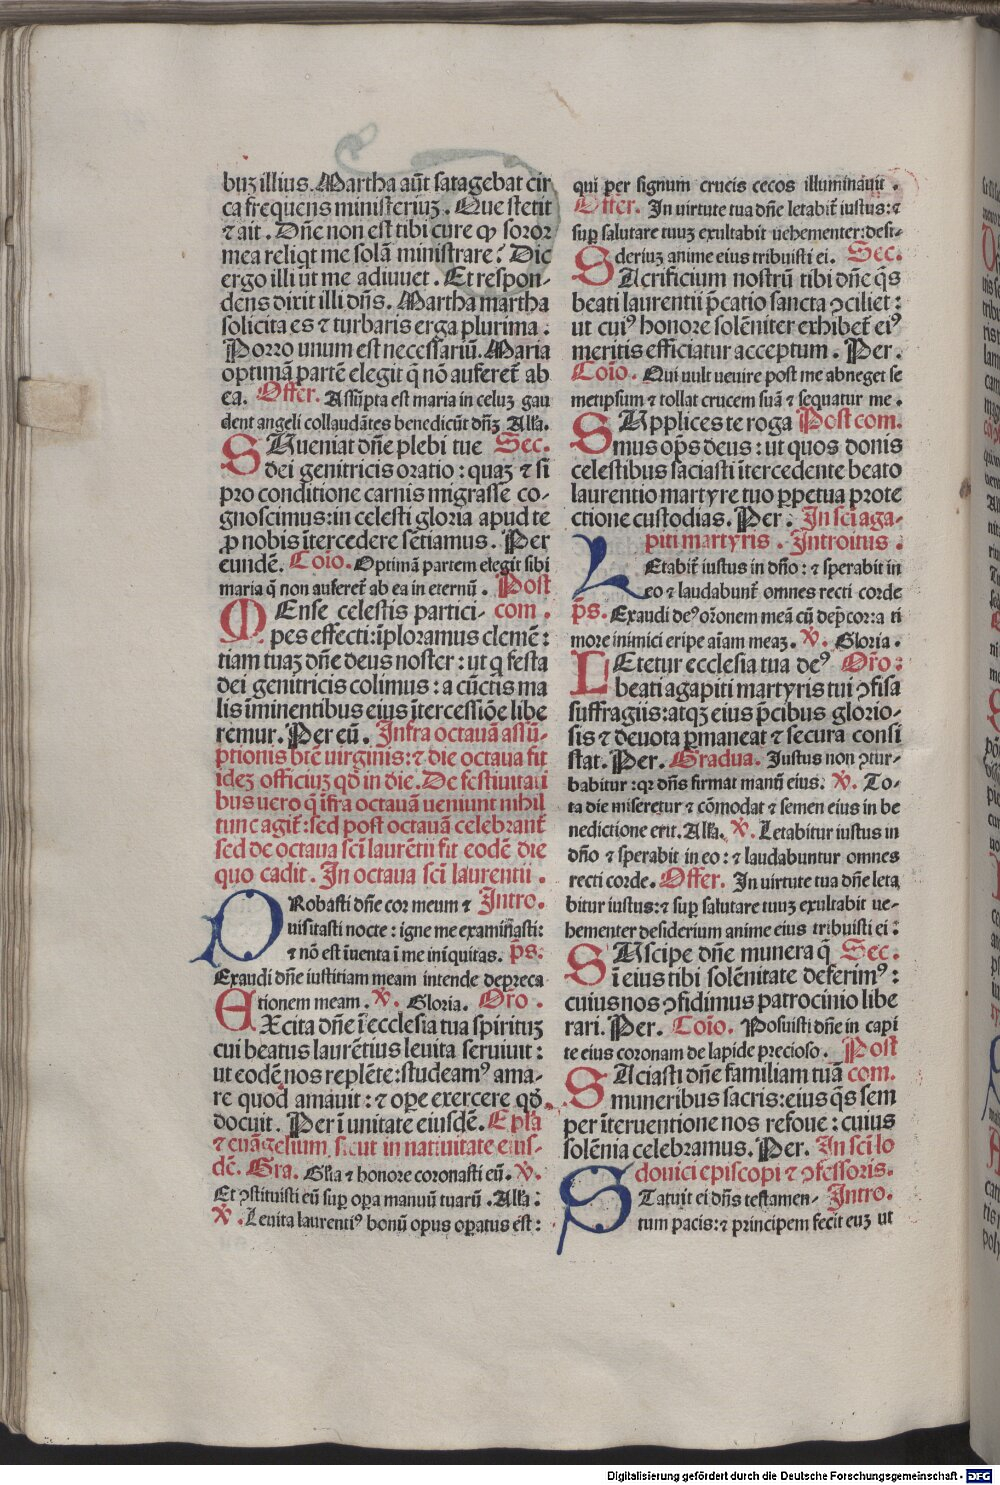 buʒ illius. Martha aūt satagebat cir
ca frequens ministeriuʒ. Que stetit
⁊ ait. Dñe non est tibi cure ꝙ soror
mea reliqt me solā ministrare? Dic
ergo illi ut me adiuuet. Et respon-
dens dixit illi dñs. Martha martha
solicita es ⁊ turbaris erga plurima.
Porro unum est necessariū. Maria
optimā partē elegit q̄ nō auferet̄ ab
ea. Offer. Assūpta est maria in celuʒ gau
dent angeli collaudātes benedicūt dñʒ Alľa.
SUueniat dñe plebi tue Sec.
dei genitricis oratio: quaʒ ⁊ si
pro conditione carnis migrasse co-
gnoscimus: in celesti gloria apud te
ꝓ nobis ītercedere sētiamus. Per
eundē. Coīo. Optimā partem elegit sibi
maria q̄ non auferet̄ ab ea in eternū. Post
MEnse celestis partici- com.
pes effecti: īploramus clemē:
tiam tuaʒ dñe deus noster: ut q̄ festa
dei genitricis colimus: a cūctis ma
lis īminentibus eius ītercessiōe libe
remur. Per eū. Infra octauā assū-
ptionis btē uirginis: ⁊ die octaua fit
ideʒ officiuʒ qđ in die. De festiuitati
bus uero q̄ ifra octauā ueniunt nihil
tunc agit̄: sed post octauā celebrant̄
sed de octaua sc̄i laurētii fit eodē die
quo cadit. In octaua sc̄i laurentii.
PRobasti dñe cor meum ⁊ Intro.
uisitasti nocte: igne me examinasti:
⁊ nō est īuenta ī me iniquitas. p̄s.
Exaudi dñe iustitiam meam intende depreca
tionem meam. ℣. Gloria. Oro.
EXcita dñe ī ecclesia tua spirituʒ
cui beatus laurētius leuita seruiuit:
ut eodē nos replēte: studeamꝰ ama-
re quod amauit: ⁊ oꝑe exercere qđ
docuit. Per ī unitate eiusdē. Epľa
⁊ euāgelium sicut in natiuitate eius-
dē. Gra. Glia ⁊ honore coronasti eū. ℣.
Et ꝯstituisti eū suꝑ oꝑa manuū tuarū. Alľa:
℣. Leuita laurentiꝰ bonū opus oꝑatus est:
qui per signum crucis cecos illuminauit.
Offer. In virtute tua dñe letabit̄ iustus: ⁊
suꝑ salutare tuuʒ exultabit uehementer: desi-
deriuʒ anime eius tribuisti ei. Sec.
SAcrificium nostrū tibi dñe q̄s
beati laurentii p̄catio sancta ꝯciliet:
ut cuiꝰ honore solēniter exhibet̄ eiꝰ
meritis efficiatur acceptum. Per.
Coīo. Qui uult uenire post me abneget se
metipsum ⁊ tollat crucem suā ⁊ sequatur me.
SUpplices te roga Post com.
mus op̄s deus: ut quos donis
celestibus saciasti ītercedente beato
laurentio martyre tuo ꝑpetua prote
ctione custodias. Per. In sc̄i aga-
piti martyris. Introitus.
LEtabit̄ iustus in dño: ⁊ sperabit in
eo ⁊ laudabunt̄ omnes recti corde
p̄s. Exaudi deꝰ orōnem meā cū dep̄cor: a ti
more inimici eripe aīam meaʒ. ℣. Gloria.
LEtetur ecclesia tua deꝰ Oro:
beati agapiti martyris tui ꝯfisa
suffragiis: atqʒ eius p̄cibus glorio-
sis ⁊ deuota ꝑmaneat ⁊ secura consi
stat. Per. Gradua. Iustus non ꝯtur-
babitur: qꝛ dñs firmat manū eius. ℣. To-
ta die miseretur ⁊ cōmodat ⁊ semen eius in be
nedictione erit. Alľa. ℣. Letabitur iustus in
dño ⁊ sperabit in eo: ⁊ laudabuntur omnes
recti corde. Offer. In uirtute tua dñe leta
bitur iustus: ⁊ suꝑ salutare tuuʒ exultabit ue-
hementer desiderium anime eius tribuisti ei:
SUscipe dñe munera q̄ Sec.
ī eius tibi solēnitate deferimꝰ:
cuius nos ꝯfidimus patrocinio libe
rari. Per. Coīo. Posuisti dñe in capi
te eius coronam de lapide precioso. Post
SAciasti dñe familiam tuā com.
muneribus sacris: eius q̄s sem
per īteruentione nos refoue: cuius
solēnia celebramus. Per. In sc̄i lo
douici episcopi ⁊ ꝯfessoris.
STatuit ei dñs testamen- Intro.
tum pacis: ⁊ principem fecit euʒ ut
Digitalisierung gefördert durch die Deutsche Forschungsgemeinschaft - DFG